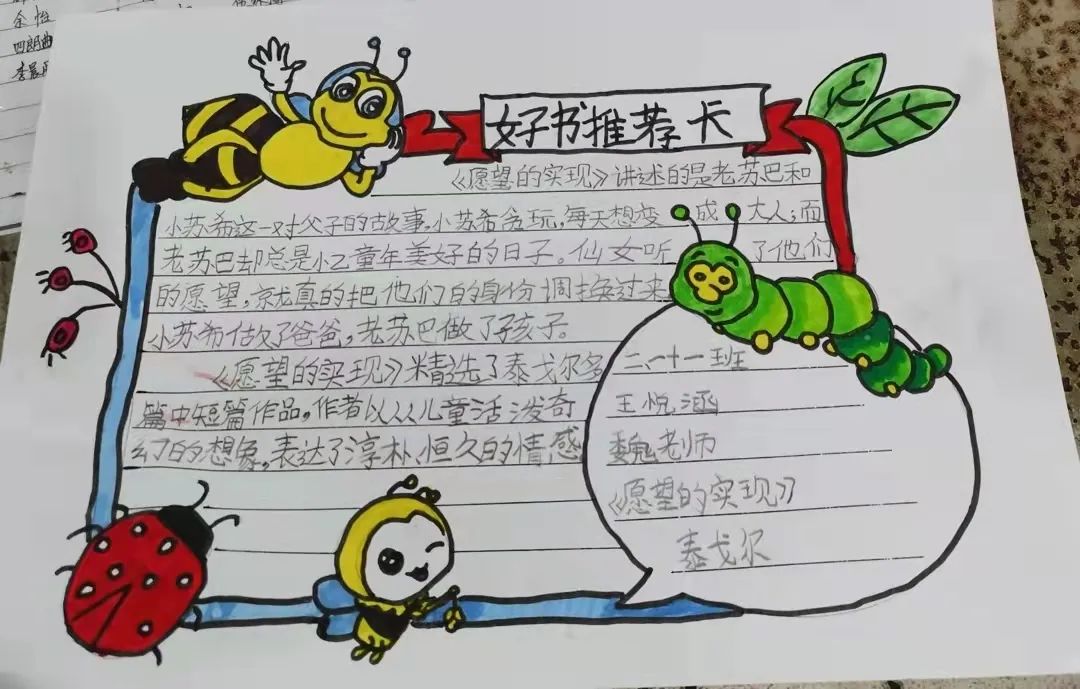 余怡
四朗曲
好书推荐卡
《愿望的实现》讲述的是老苏巴和
小苏希这一对父子的故事,小苏希贪玩,每天想变成大人;而
老苏巴却总是小乙童年美好的日子。仙女听了他们
的愿望,就真的把他们的身份调换过来
小苏希做了爸爸,老苏巴做了孩子。
《愿望的实现》精选了泰戈尔多
篇中短篇作品,作者以从儿童活泼奇
幻的想象,表达了淳朴、恒久的情感
二、十一班
王悦涵
魏老师
《愿望的实现》
泰戈尔